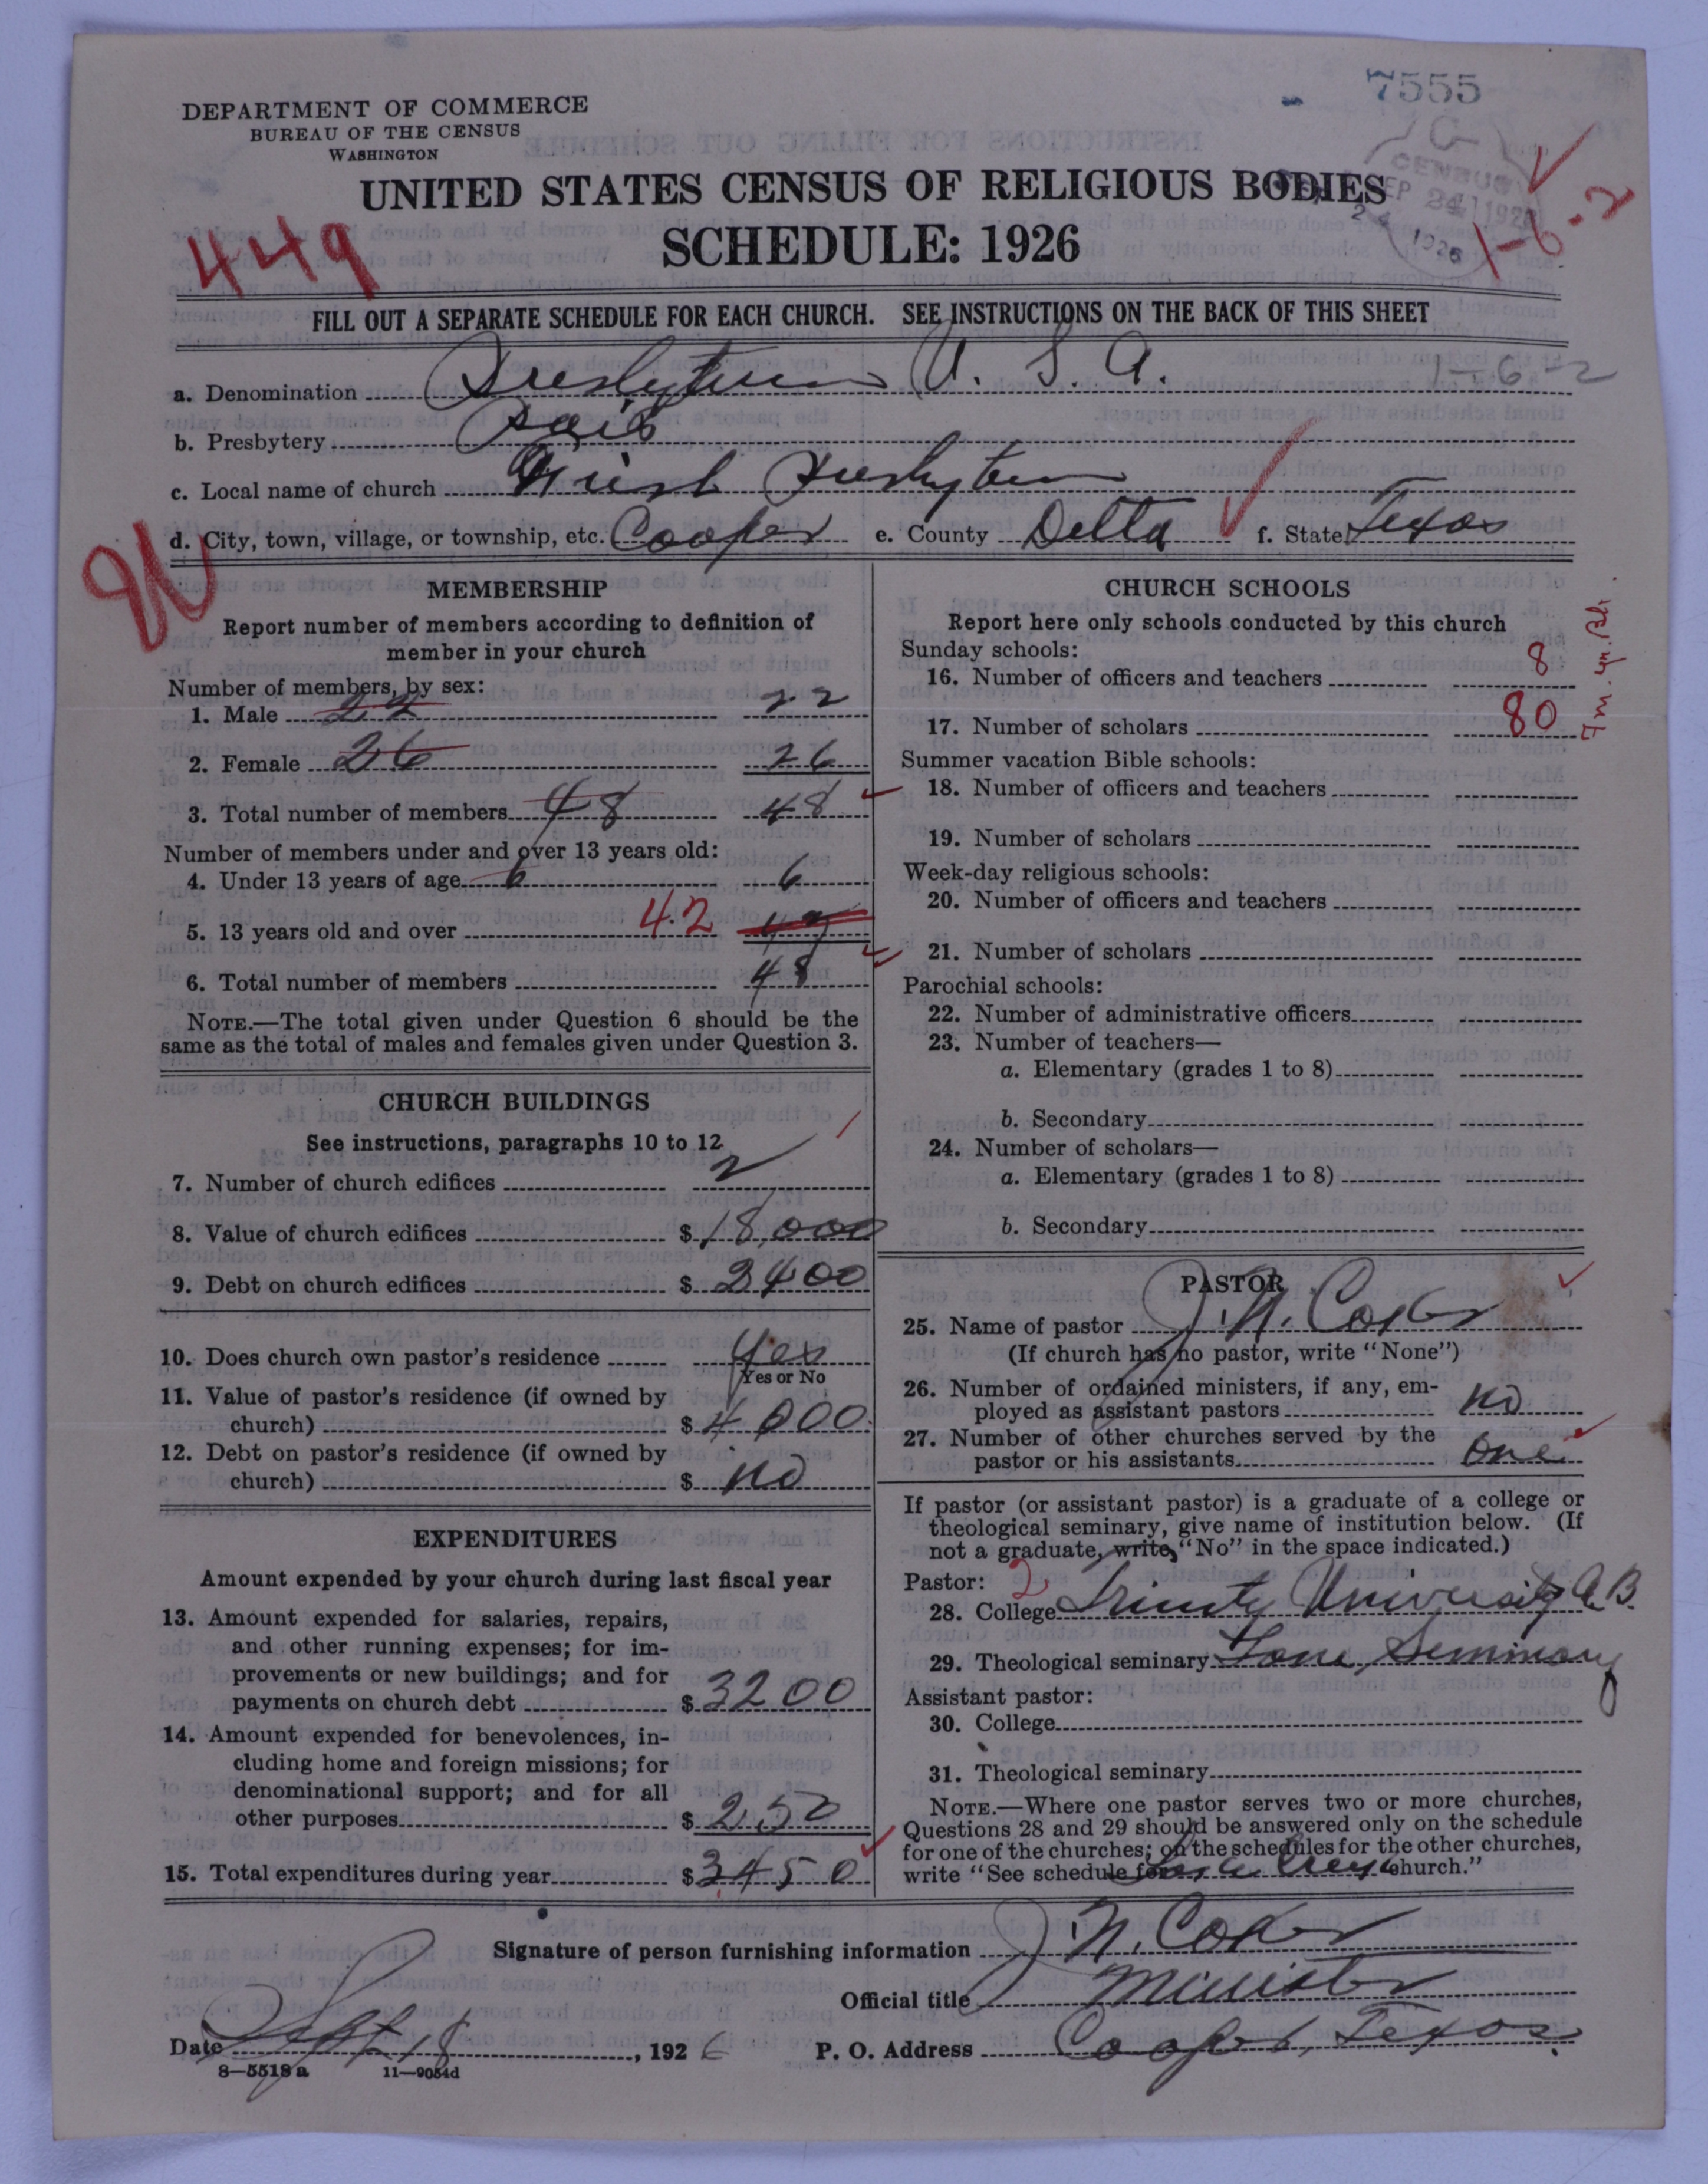 7555
DEPARTMENT OF COMMERCE
BUREAU OF THE CENSUS
WASHINGTON
UNITED STATES CENSUS OF RELIGIOUS BODIES
SCHEDULE: 1926
449
CENSUS
SEP 24 1926
24 1926
1-6-2
FILL OUT A SEPARATE SCHEDULE FOR EACH CHURCH. SEE INSTRUCTIONS ON THE BACK OF THIS SHEET
a. Denomination Presbyterian U. S. A. 1-6-2
b. Presbytery Paris
c. Local name of church First Presbyterian
d. City, town, village, or township, etc. Cooper e. County Delta f. State Texas
MEMBERSHIP
Report number of members according to definition of
member in your church
Number of members, by sex:
1. Male 22 22
2. Female 26 26
3. Total number of members 48 48
Number of members under and over 13 years old:
4. Under 13 years of age 6 6
5. 13 years old and over 42
6. Total number of members 48
NOTE.—The total given under Question 6 should be the
same as the total of males and females given under Question 3.
CHURCH BUILDINGS
See instructions, paragraphs 10 to 12
7. Number of church edifices 2
8. Value of church edifices $ 18,000
9. Debt on church edifices $ 2400
10. Does church own pastor's residence Yes
Yes or No
11. Value of pastor's residence (if owned by
church) $ 4000
12. Debt on pastor's residence (if owned by
church) $ no
EXPENDITURES
Amount expended by your church during last fiscal year
13. Amount expended for salaries, repairs,
and other running expenses; for im-
provements or new buildings; and for
payments on church debt $ 3200
14. Amount expended for benevolences, in-
cluding home and foreign missions; for
denominational support; and for all
other purposes $ 250
15. Total expenditures during year $ 3450
CHURCH SCHOOLS
Report here only schools conducted by this church
Sunday schools:
16. Number of officers and teachers 8
17. Number of scholars 80
Summer vacation Bible schools:
18. Number of officers and teachers
19. Number of scholars
Week-day religious schools:
20. Number of officers and teachers
21. Number of scholars
Parochial schools:
22. Number of administrative officers
23. Number of teachers—
a. Elementary (grades 1 to 8)
b. Secondary
24. Number of scholars—
a. Elementary (grades 1 to 8)
b. Secondary
PASTOR
25. Name of pastor J. N.
(If church has no pastor, write "None")
26. Number of ordained ministers, if any, em-
ployed as assistant pastors no
27. Number of other churches served by the
pastor or his assistants one
If pastor (or assistant pastor) is a graduate of a college or
theological seminary, give name of institution below. (If
not a graduate, write "No" in the space indicated.)
Pastor: 2
28. College Trinity University A.B.
29. Theological seminary Lane Seminary
Assistant pastor:
30. College
31. Theological seminary
NOTE.—Where one pastor serves two or more churches,
Questions 28 and 29 should be answered only on the schedule
for one of the churches; on the schedules for the other churches,
write "See schedule for church."
Signature of person furnishing information J. N.
Official title Minister
Date Sept 18, 1926 P. O. Address Cooper, Texas
8—5518 a 11—9054d